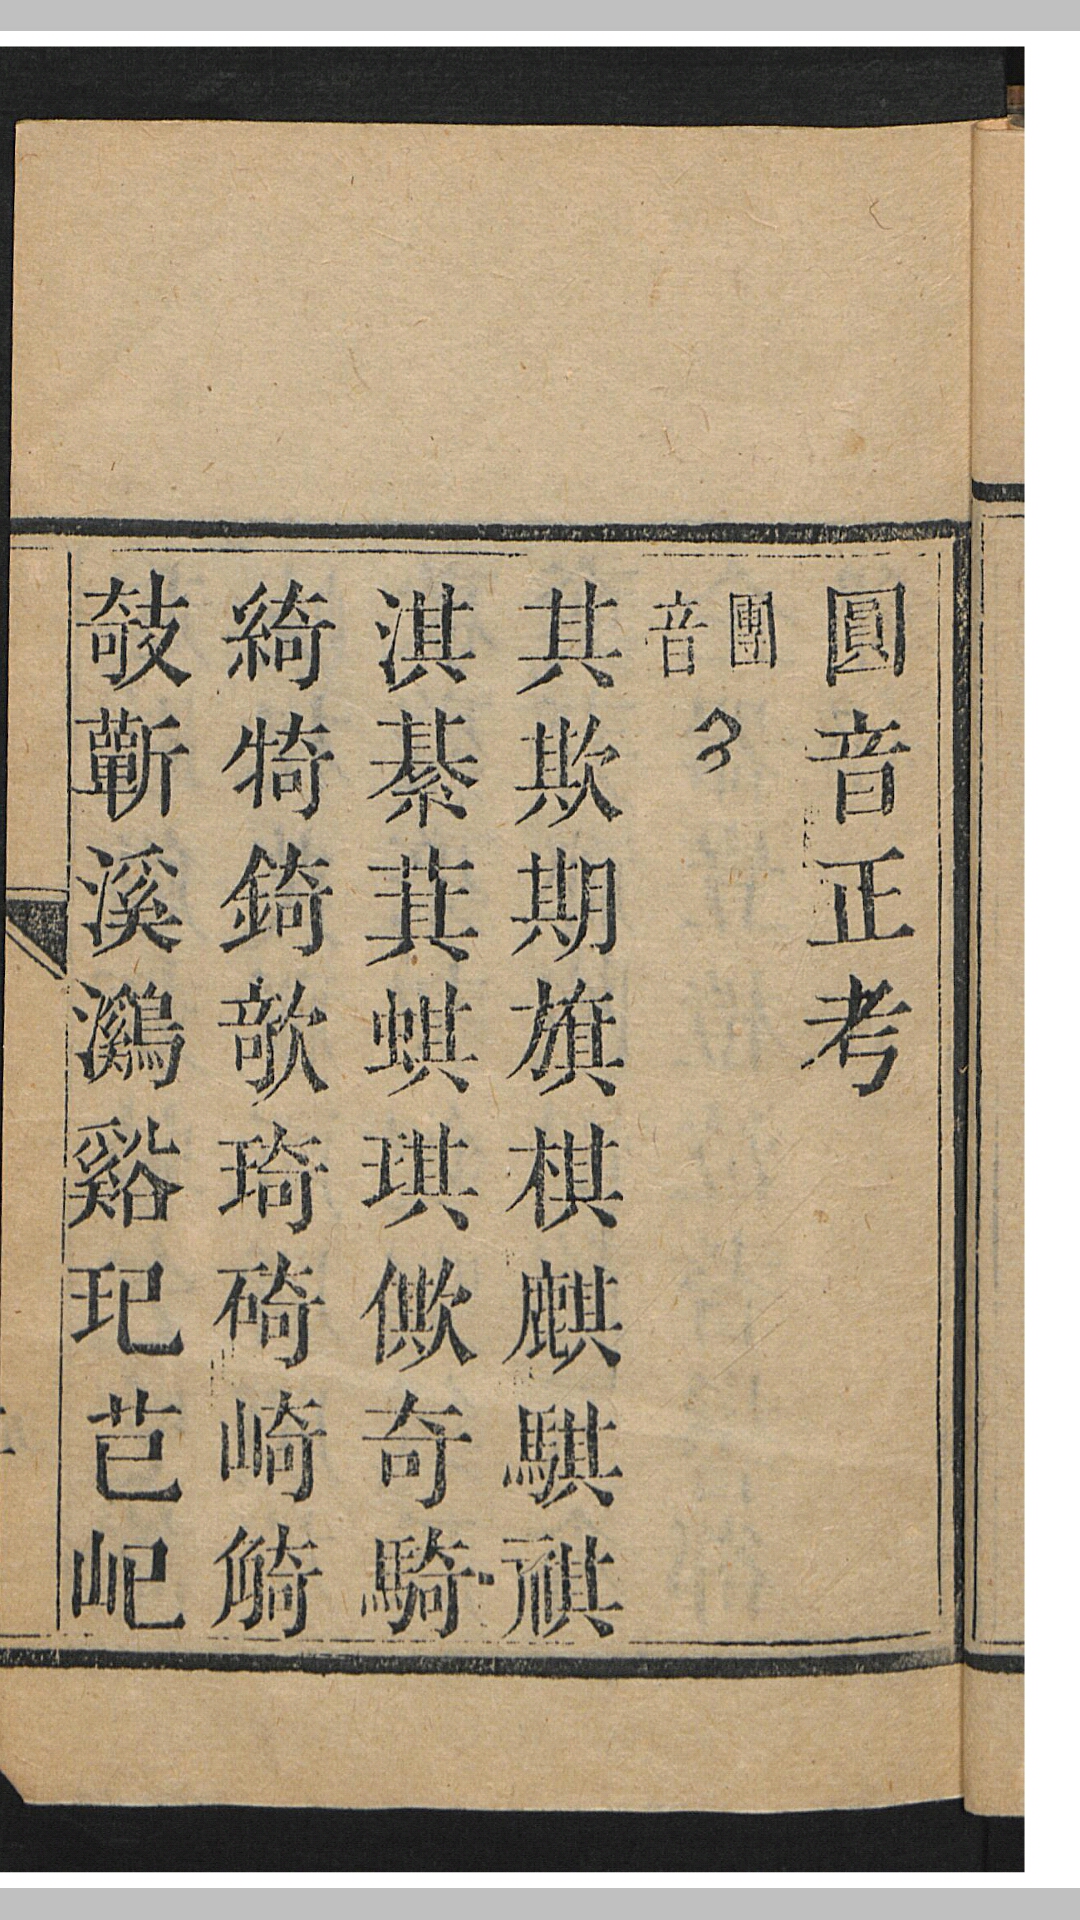 圓音正考
團音
其欺期旗棋麒騏祺
淇綦萁蜞琪僛奇騎
綺犄錡欹琦碕崎觭
攲蘄溪鸂谿玘芑屺